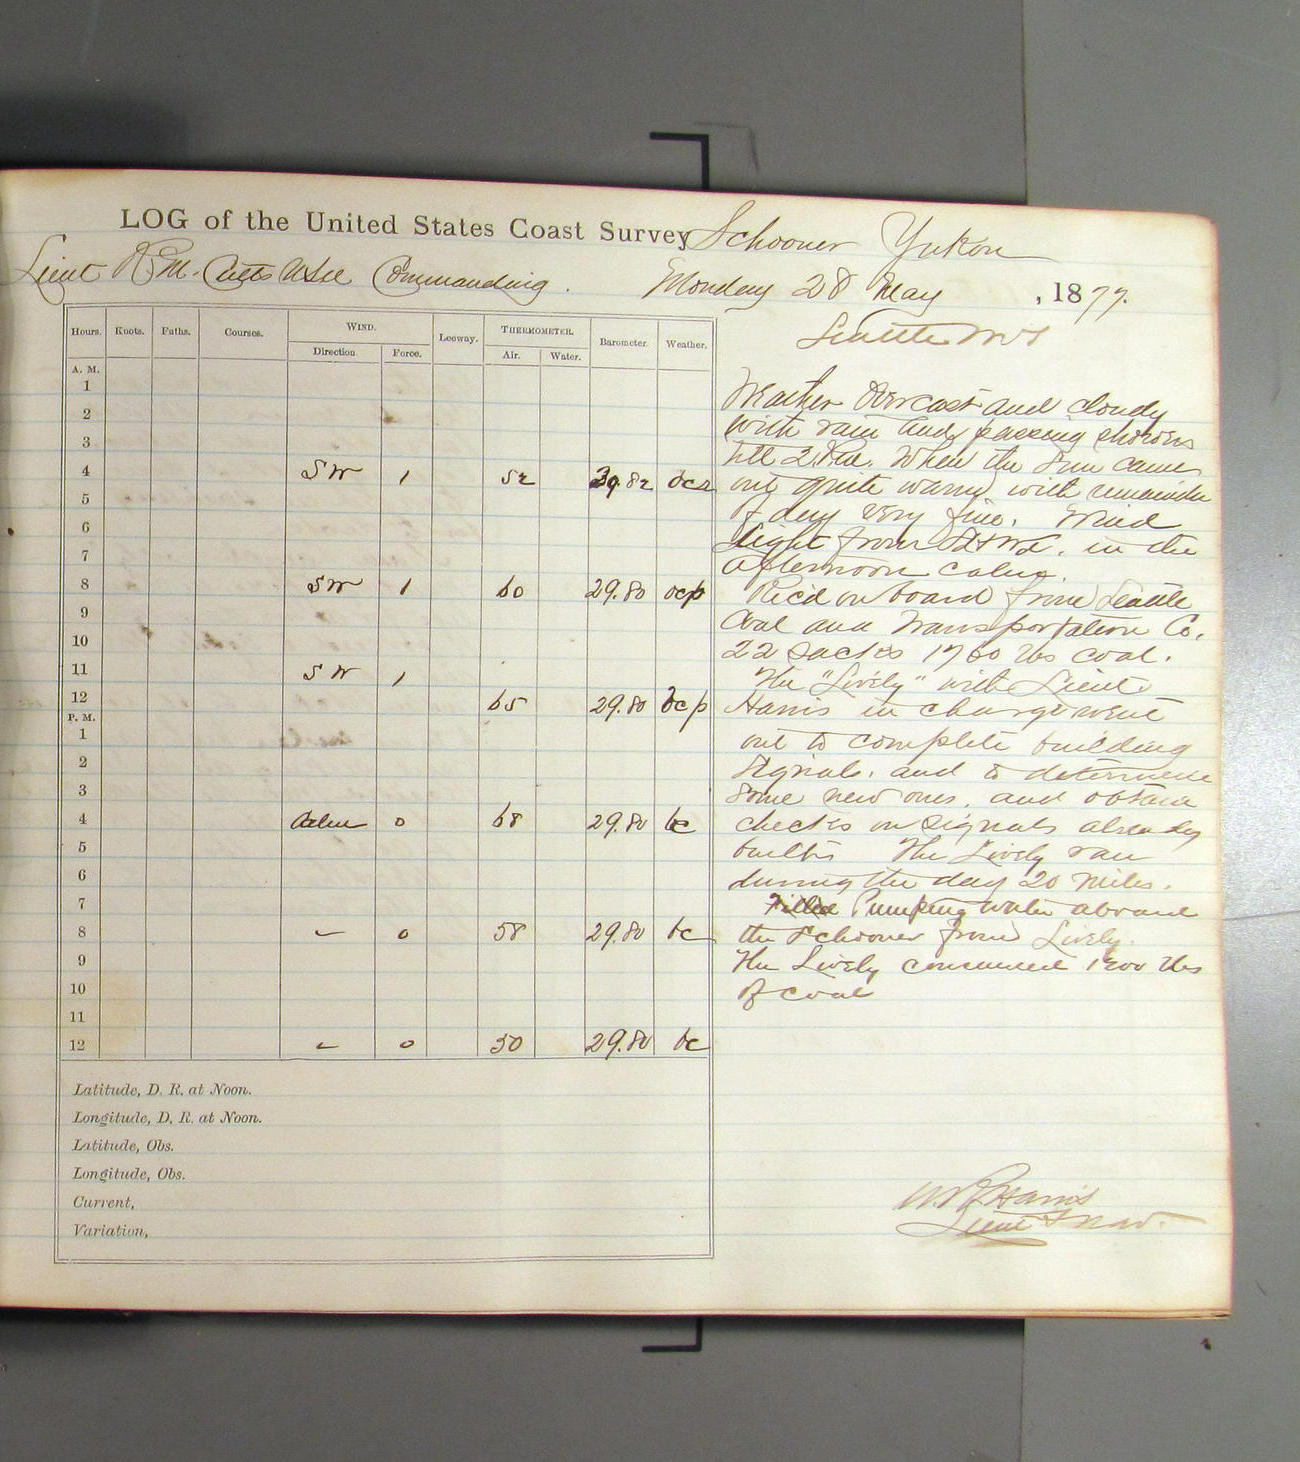 LOG of the United States Coast Survey Schooner Yukon
Lieut R. M. Cutts USN Commanding. Monday 28 May, 1877.
Seattle W T
Hours. Knots. Faths. Courses. WIND. Leeway. THERMOMETER. Barometer. Weather.
Direction. Force. Air. Water.
A. M.
1
2
3
4 SW 1 52 29.82 ocr
5
6
7
8 SW 1 60 29.80 ocp
9
10
11 SW 1
12 65 29.80 bcp
P. M.
1
2
3
4 Calm 0 68 29.80 bc
5
6
7
8 " 0 58 29.80 bc
9
10
11
12 " 0 50 29.80 bc
Latitude, D. R. at Noon.
Longitude, D. R. at Noon.
Latitude, Obs.
Longitude, Obs.
Current,
Variation,
Weather Overcast and cloudy
with rain and passing showers
till 2 P.M. When the Sun came
out quite warm, with remainder
of day very fine. Wind
light from, in the
afternoon calm.
Rec'd on board from Seattle
Coal and Transportation Co.
22 Sacks 1760 lbs coal.
The "Lively" with Lieut
Harris in charge went
out to complete building
Signals, and to determine
some new ones, and obtain
checks on signals already
built. The Lively ran
during the day 20 miles.
Filled Pumping water aboard
the Schooner from Lively.
The Lively consumed 1200 lbs
of coal
Harris
Lieut Nav.